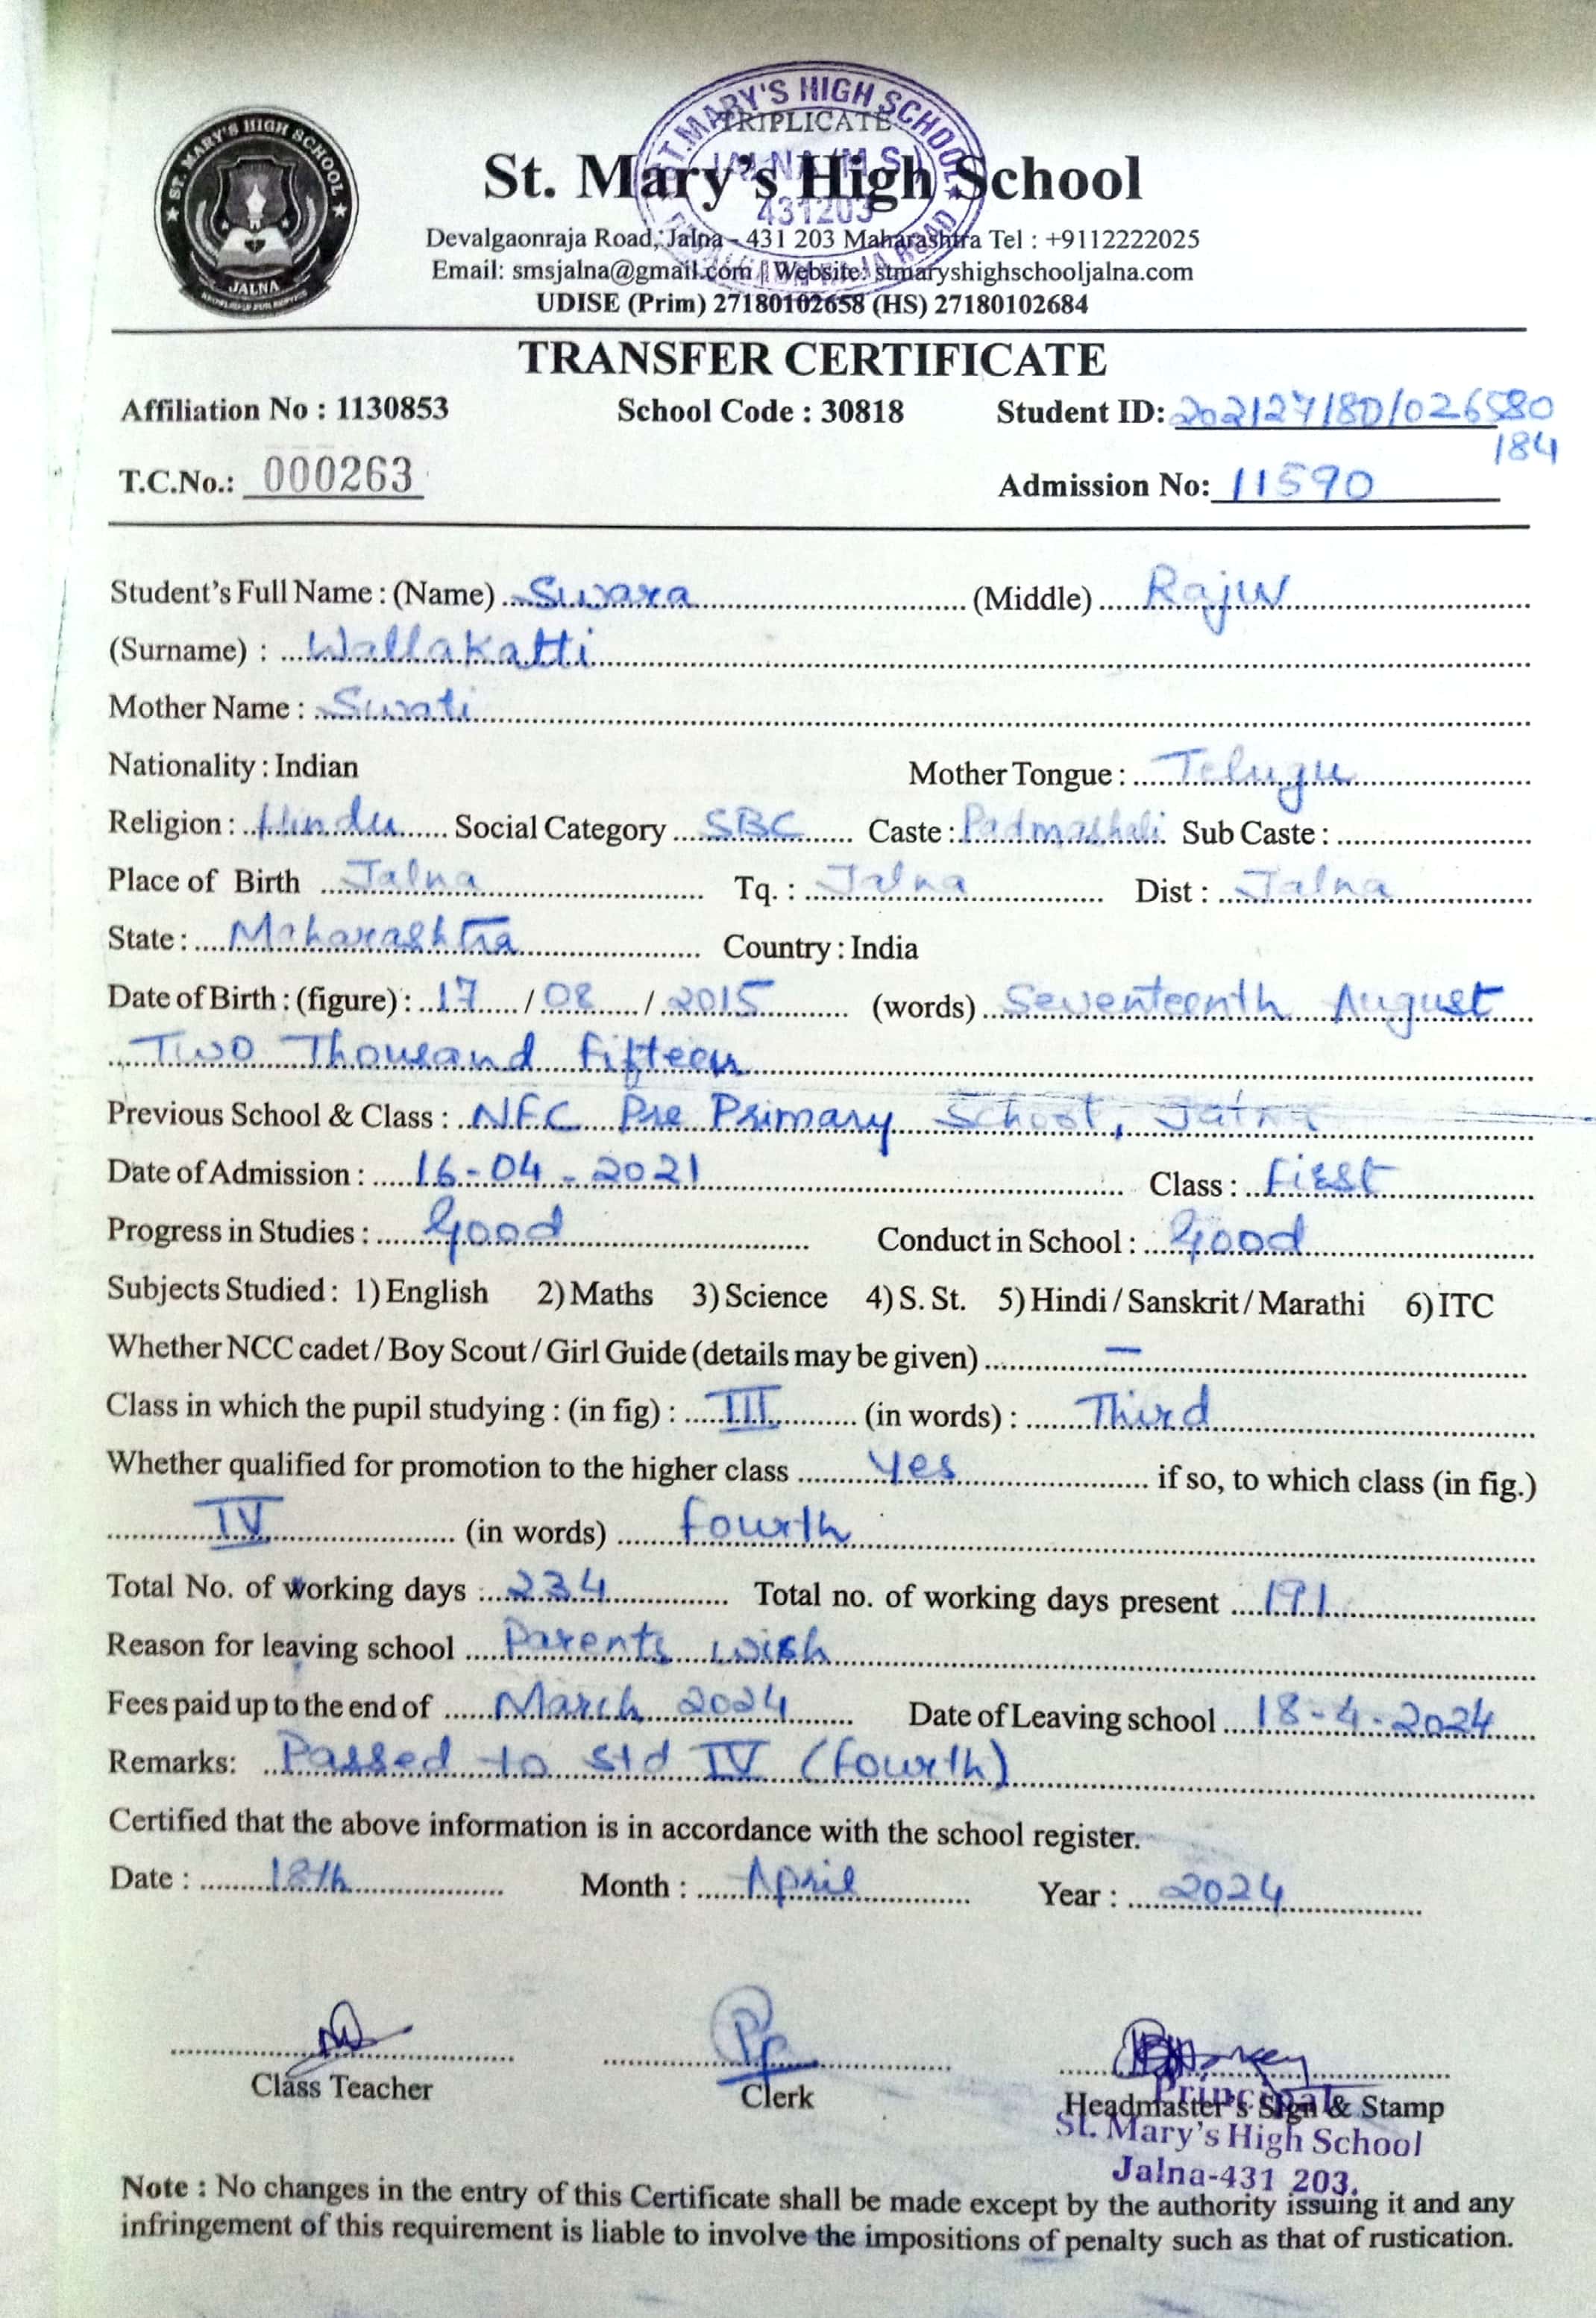 ST. MARY'S HIGH SCHOOL
JALNA
ST. MARY'S HIGH SCHOOL
TRIPLICATE
JALNA (M.S.)
431203
St. Mary's High School
Devalgaonraja Road, Jalna - 431 203 Maharashtra Tel : +9112222025
Email: smsjalna@gmail.com | Website: stmaryshighschooljalna.com
UDISE (Prim) 27180102658 (HS) 27180102684
TRANSFER CERTIFICATE
Affiliation No : 1130853 School Code : 30818 Student ID: 202127180/026580
184
T.C.No.: 000263 Admission No: 11590
Student's Full Name : (Name) Swara (Middle) Raju
(Surname) : Wallakatti
Mother Name : Swati
Nationality : Indian Mother Tongue : Telugu
Religion : Hindu Social Category SBC Caste : Padmashali Sub Caste :
Place of Birth Jalna Tq. : Jalna Dist : Jalna
State : Maharashtra Country : India
Date of Birth : (figure) : 17 / 08 / 2015 (words) Seventeenth August
Two Thousand Fifteen
Previous School & Class : NFC Pre Primary School, Jalna
Date of Admission : 16-04-2021 Class : First
Progress in Studies : Good Conduct in School : Good
Subjects Studied : 1) English 2) Maths 3) Science 4) S. St. 5) Hindi / Sanskrit / Marathi 6) ITC
Whether NCC cadet / Boy Scout / Girl Guide (details may be given) —
Class in which the pupil studying : (in fig) : III (in words) : Third
Whether qualified for promotion to the higher class Yes if so, to which class (in fig.)
IV (in words) Fourth
Total No. of working days : 234 Total no. of working days present 191
Reason for leaving school Parents wish
Fees paid up to the end of March 2024 Date of Leaving school 18-4-2024
Remarks: Passed to std IV (Fourth)
Certified that the above information is in accordance with the school register.
Date : 18th Month : April Year : 2024
Class Teacher Clerk Headmaster's Sign & Stamp
Principal
St. Mary's High School
Jalna-431 203.
Note : No changes in the entry of this Certificate shall be made except by the authority issuing it and any
infringement of this requirement is liable to involve the impositions of penalty such as that of rustication.